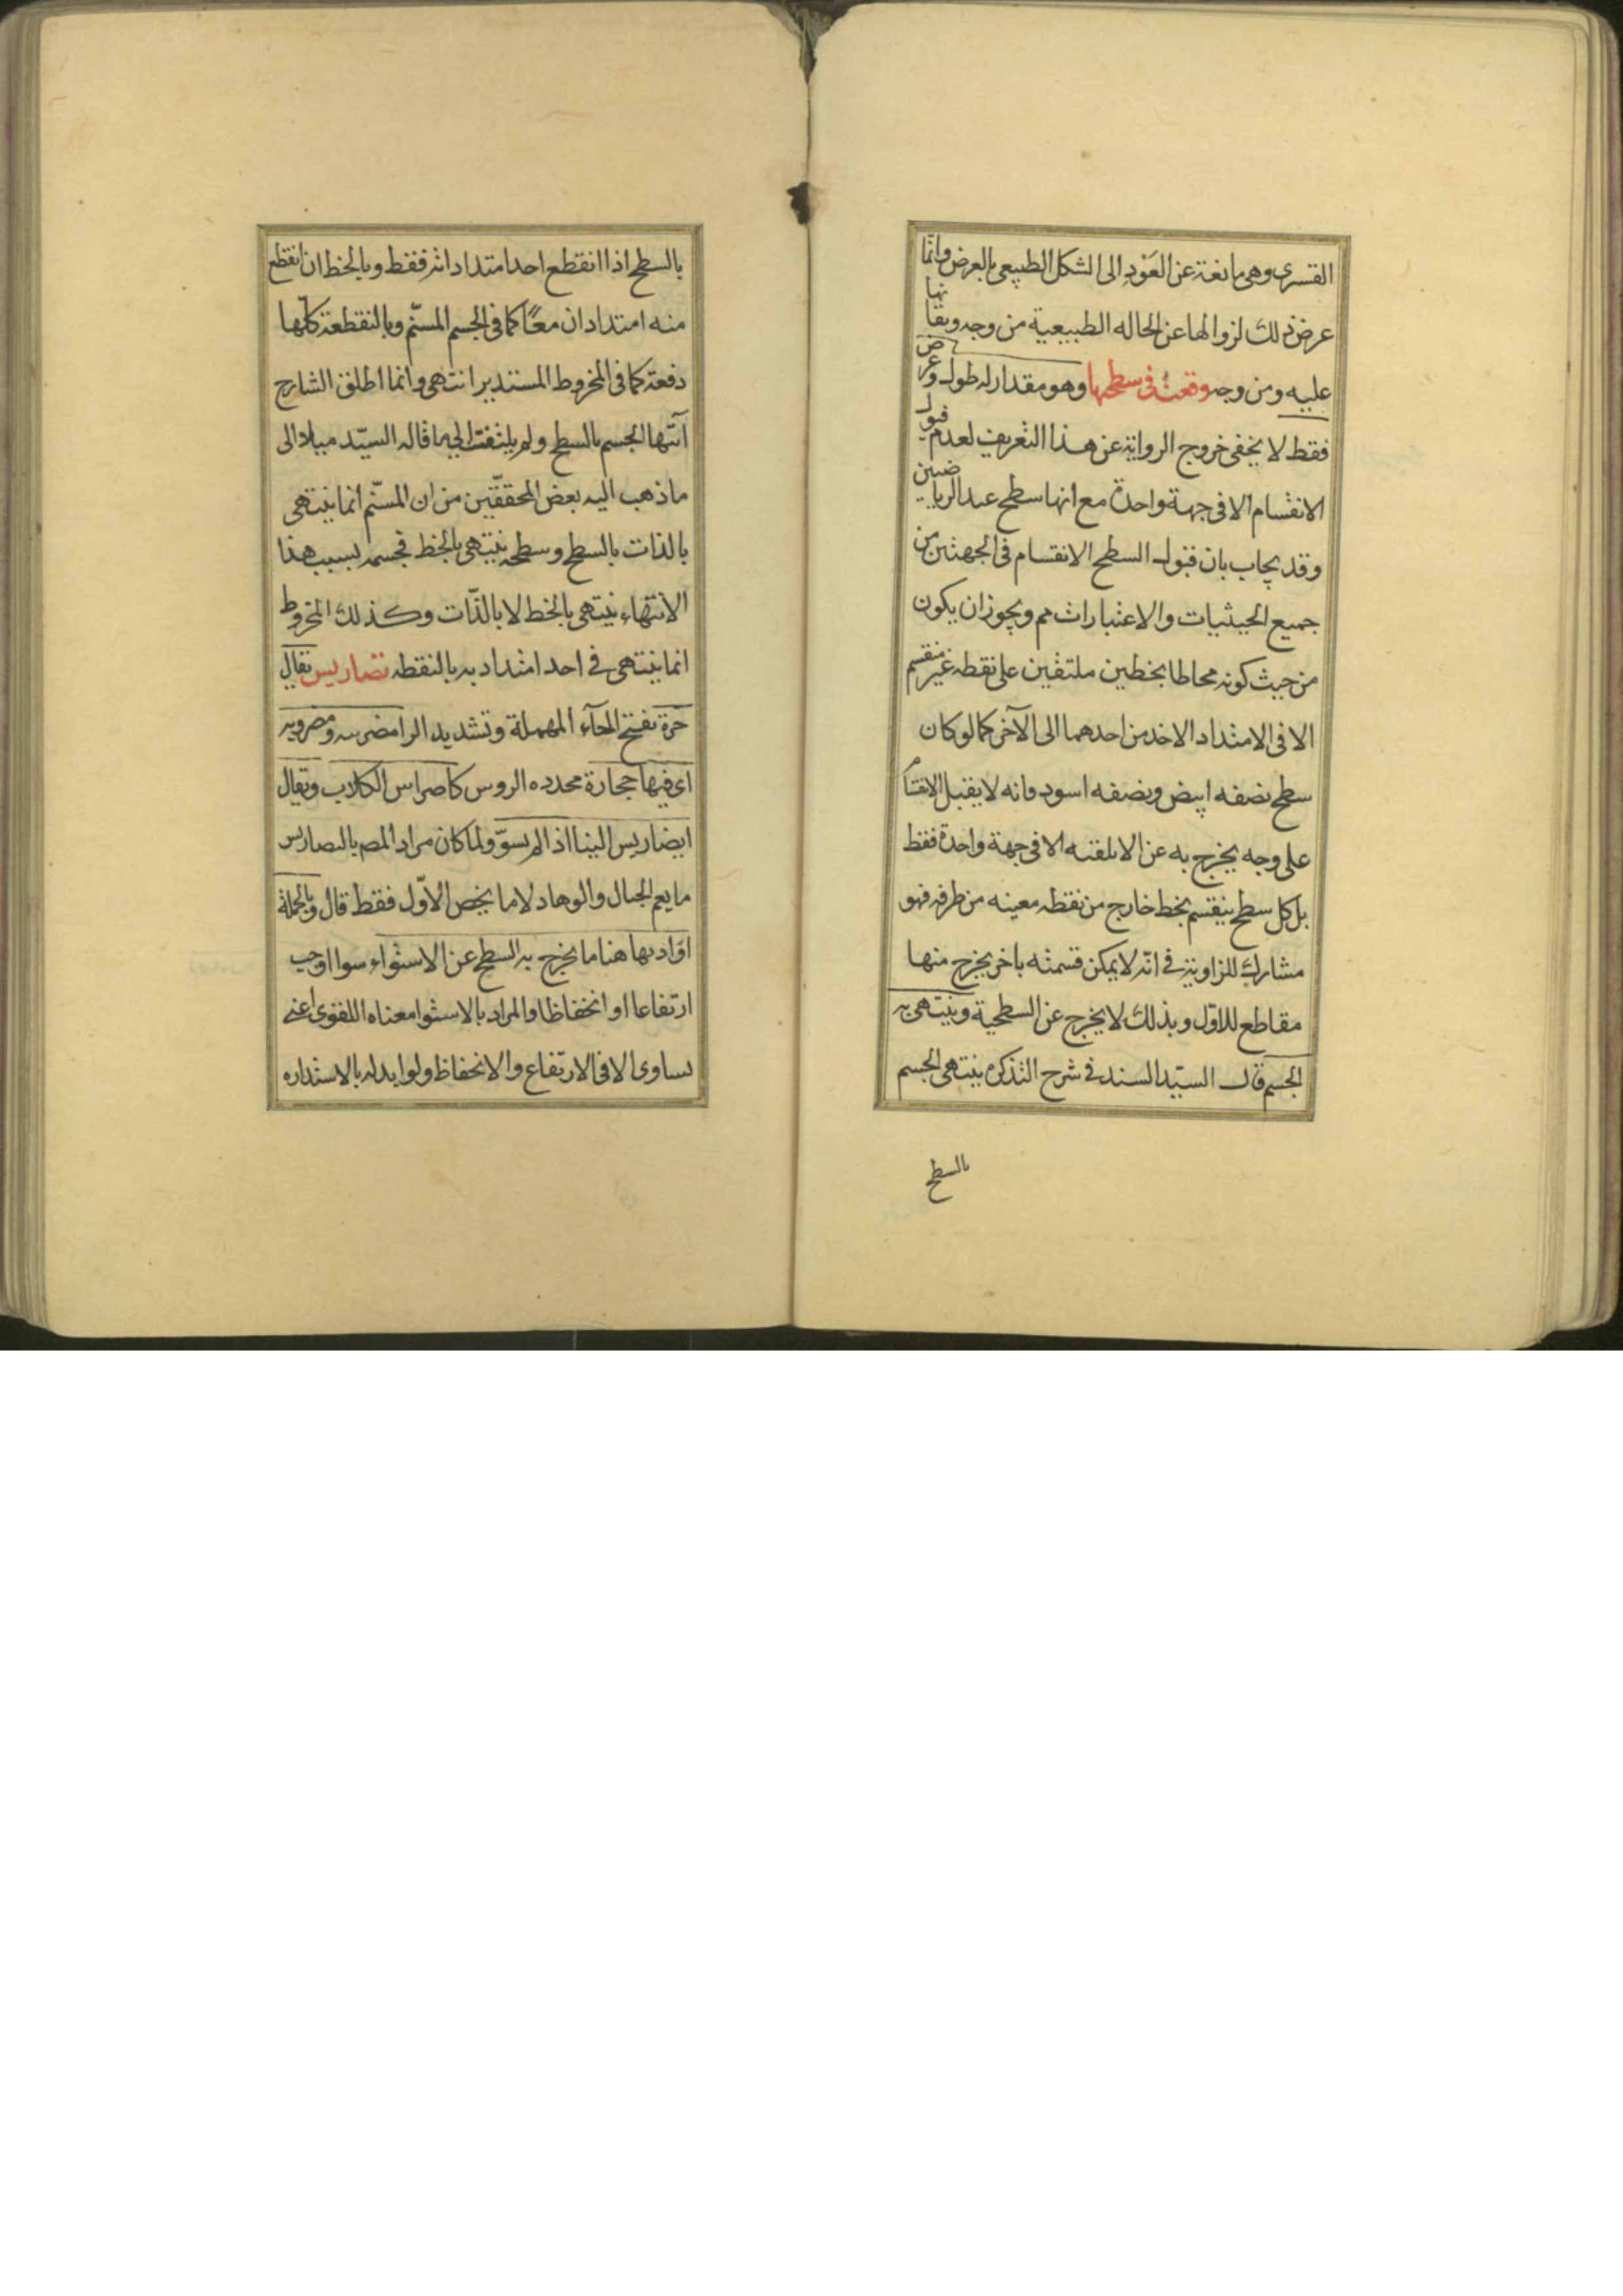 القسري وهي مانعة عن العَوْدِ الى الشكل الطبيعي بالعرض وانّما
عرض ذلك لزوالها عن الحاله الطبيعية من وجه وبقائها
عليه ومن وجه وقعت في سطحها وهو مقدار له طول وعرض
فقط لا يخفى خروج الرواية عن هذا التعريف لعدم قبول
الانقسام الا في جهة واحدة مع انها سطح عند الرياضيين
وقد يجاب بان قبول السطح الانقسام في الجهتين من
جميع الحيثيات والاعتبارات مم ويجوز ان يكون
من حيث كونه محاطا بخطين ملتقين على نقطه غير منقسم
الا في الامتداد الاخذ من احدهما الى الآخر كما لو كان
سطح نصفه ابيض ونصفه اسود فانه لا يقبل الانقسام
على وجه يخرج به عن الابلقيه الا في جهة واحدة فقط
بل كل سطح ينقسم بخط خارج من نقطه معينه من طرفه فهو
مشارك للزاوية في انّه لا يمكن قسمته باخر يخرج منها
مقاطع للاوّل وبذلك لا يخرج عن السطحية وينتهى به
الجسم قال السيّد السند في شرح التذكره ينتهى الجسم
بالسطح
بالسطح اذا انقطع احد امتداداته فقط وبالخط ان انقطع
منه امتدادان معًا كما في الجسم المسنّم وبالنقطة كلها
دفعة كما في المخروط المستدير انتهى وانما اطلق الشارح
انتهاء الجسم بالسطح ولم يلتفت الى ما قاله السيّد ميلا الى
ما ذهب اليه بعض المحققّين من ان المسنّم انما ينتهى
بالذات بالسطح وسطحه ينتهى بالخط فجسمه بسبب هذا
الانتهاء ينتهى بالخط لا بالذّات وكذلك المخروط
انما ينتهى في احد امتداديه بالنقطه تضاريس يقال
حَرة بفتح الحآء المهملة وتشديد الرا مضرسه ومضروسه
اى فيها حجارة محدده الروس كاضراس الكلاب ويقال
ايضا ريس البنا اذا لم يسوّ ولما كان مراد المصم بالتضاريس
ما يعم الجبال والوهاد لا ما يخص الاوّل فقط قال وبالجملة
اراد بها هنا ما يخرج به السطح عن الاستواء سوا اوجب
ارتفاعا او انخفاظا والمراد بالاستوا معناه اللغوى اعنى
تساوى الا فى الارتفاع والانخفاظ ولو ابدله بالاستداره